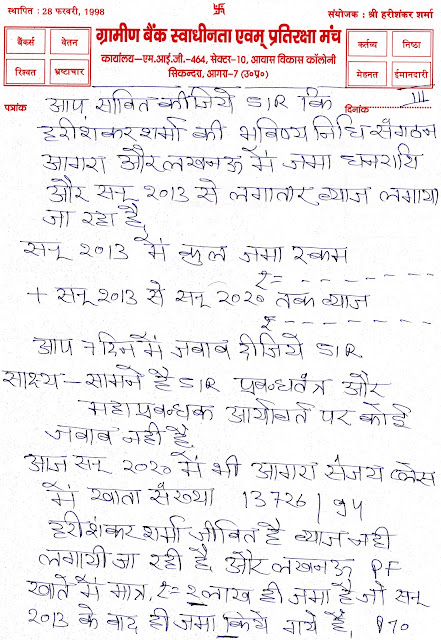 स्थापित : 28 फरवरी, 1998
संयोजक : श्री हरीशंकर शर्मा
बैंकर्स वेतन
रिश्वत भ्रष्टाचार
ग्रामीण बैंक स्वाधीनता एवम् प्रतिरक्षा मंच
कार्यालय–एम.आई.जी.-464, सेक्टर-10, आवास विकास कॉलोनी
सिकन्दरा, आगरा-7 (उ०प्र०)
कर्तव्य निष्ठा
मेहनत ईमानदारी
पत्रांक
दिनांक III
आप साबित कीजिये SIR कि
हरीशंकर शर्मा की भविष्य निधि संगठन
आगरा और लखनऊ में जमा धनराशि
और सन् २०13 से लगातार ब्याज लगाया
जा रहा है,
सन् २०13 में कुल जमा रकम
₹= - - - - - - -
+ सन् २०13 से सन् २०२० तक ब्याज
₹ - - - - - - -
आप 7 दिन में जवाब दीजिये SIR
साक्ष्य – सामने है SIR प्रबन्धतंत्र और
महाप्रबन्धक आर्यावर्त पर कोई
जवाब नहीं है,
आज सन् २०२० में भी आगरा संजय प्लेस
में खाता संख्या 13726 | 94
हरीशंकर शर्मा जीवित है ब्याज नहीं
लगायी जा रही है और लखनऊ PF
खाते में मात्र, ₹= २लाख ही जमा है जो सन्
२013 के बाद ही जमा किये गये हैं, P70